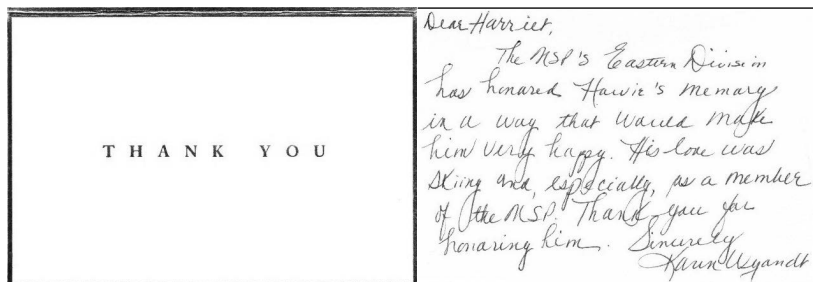 THANK YOU
Dear Harriet,
The NSP's Eastern Division
has honored Howie's memory
in a way that would make
him very happy. His love was
skiing and, especially, as a member
of the NSP. Thank you for
honoring him. Sincerely
Karen